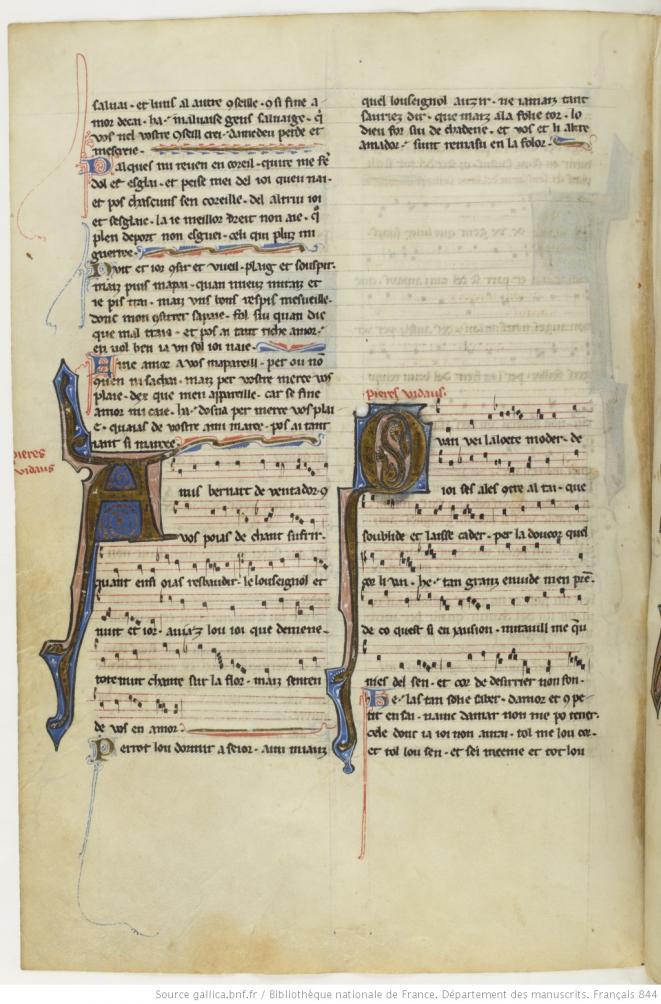 saluai · et luns al autre
mor decai · ha · maluaise gens saluaige · q̄
vos nel vostre crei · damedeu perde et
mescreie ·
Dalques mi reuen en coreil · quire me fē
dol et esglai · et peise mei del ioi queu nai ·
et pos chascuns sen coreille · del altrui ioi
et sesglaie · la ie meillor dreit non aie · q̄
plen deport non esguei · celi qui pluz mi
guerree ·
Nuit et ior et vueil · plaig et souspir ·
maiz puis mapai · quan mieuz
ie pis trai · maiz uns bons respis mesueille ·
donc mon sapaie · fol sui quan dis
que mal traie · et pos ai tant riche amor ·
en uol ben ia un sol ioi naie ·
Fine amor a vos mapareill · per ou nō
quen ni sachai · maiz per vostre merce vos
plaie · dex que men appareille · car se fine
amor mi caie · ha · dosna per merce vos plai
e · quaias de vostre ami marce · pos ai tant
iant si marcee ·
pieres
vidaus
Amis bernart de ventador · 9
vos poias de chant sufrir ·
quant ensi oias resbaudir · le louseignol et
nuit et ior · auiaz lou ioi que demene ·
tote nuit chante sur la flor · maiz senten
de vos en amor
Perrot lou dormir a seior · ain miauz
quel louseignol auzir · ne iamaiz tant
sauriez dir · que maiz a la folie cor · lo
dieu for sui de chadene · et vos et li altre
amador · sunt remasu en la folor ·
pieres vidaus ·
Quan vei laloete moder · de
ioi ses ales 9tre al rai · que
soublide et laisse cader · per la doucor quel
cor li vai · he · tan granz enuide men prē ·
de co quest si en iausion · miravill me qu
nies del sen · et cor de desirrier non fon ·
He · las tan sobre saber · damor et 9 pe
tit en sai · namc damar non me po tener ·
cele dont ia ioi non aurai · tol me lou cor ·
et tol lou sen · et sei meeme et tot lou
Source gallica.bnf.fr / Bibliothèque nationale de France. Département des manuscrits. Français 844